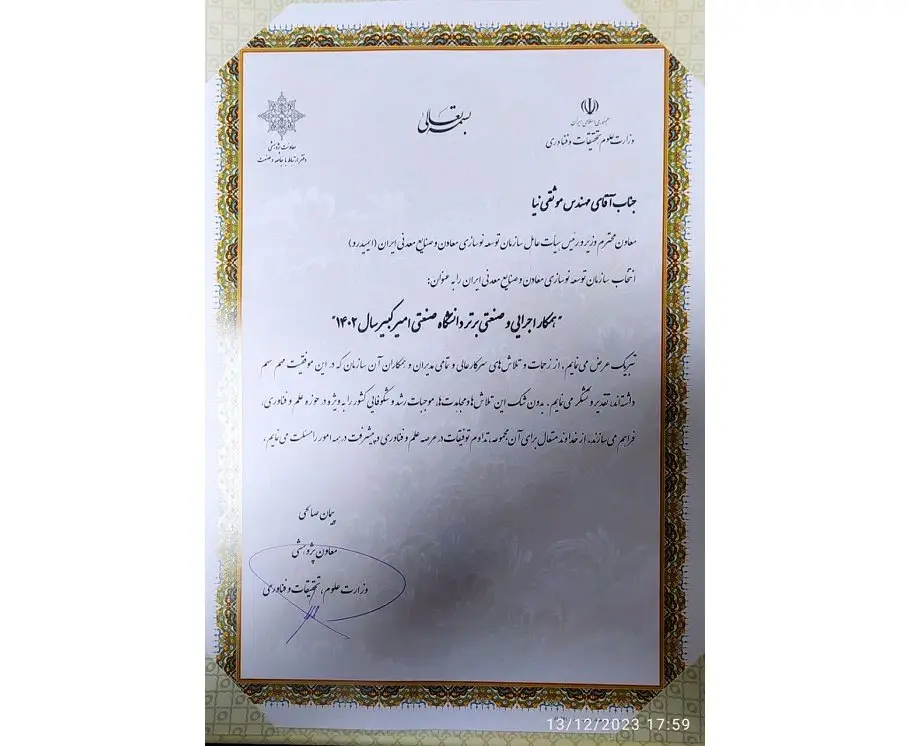 بسمه تعالی
جمهوری اسلامی ایران
وزارت علوم تحقیقات و فناوری
معاونت پژوهشی
دفتر ارتباط با جامعه و صنعت
جناب آقای مهندس موثقی نیا
معاون محترم وزیر و رئیس هیأت عامل سازمان توسعه نوسازی معادن و صنایع معدنی ایران (ایمیدرو)
انتخاب سازمان توسعه نوسازی معادن و صنایع معدنی ایران را به عنوان:
"همکار اجرایی و صنعتی برتر دانشگاه صنعتی امیرکبیر سال ۱۴۰۲"
تبریک عرض می نمایم، از زحمات و تلاش های سرکارعالی و تمامی مدیران و همکاران آن سازمان که در این موفقیت مهم سهم
داشته‌اند، تقدیر و تشکر می نمایم. بدون شک این تلاش ها و مجاهدت ها، موجبات رشد و شکوفایی کشور را به ویژه در حوزه علم و فناوری،
فراهم می سازند، از خداوند متعال برای آن مجموعه، تداوم توفیقات در عرصه علم و فناوری و پیشرفت در همه امور را مسئلت می نمایم.
پیمان صالحی
معاون پژوهشی
وزارت علوم، تحقیقات و فناوری
13/12/2023 17:59